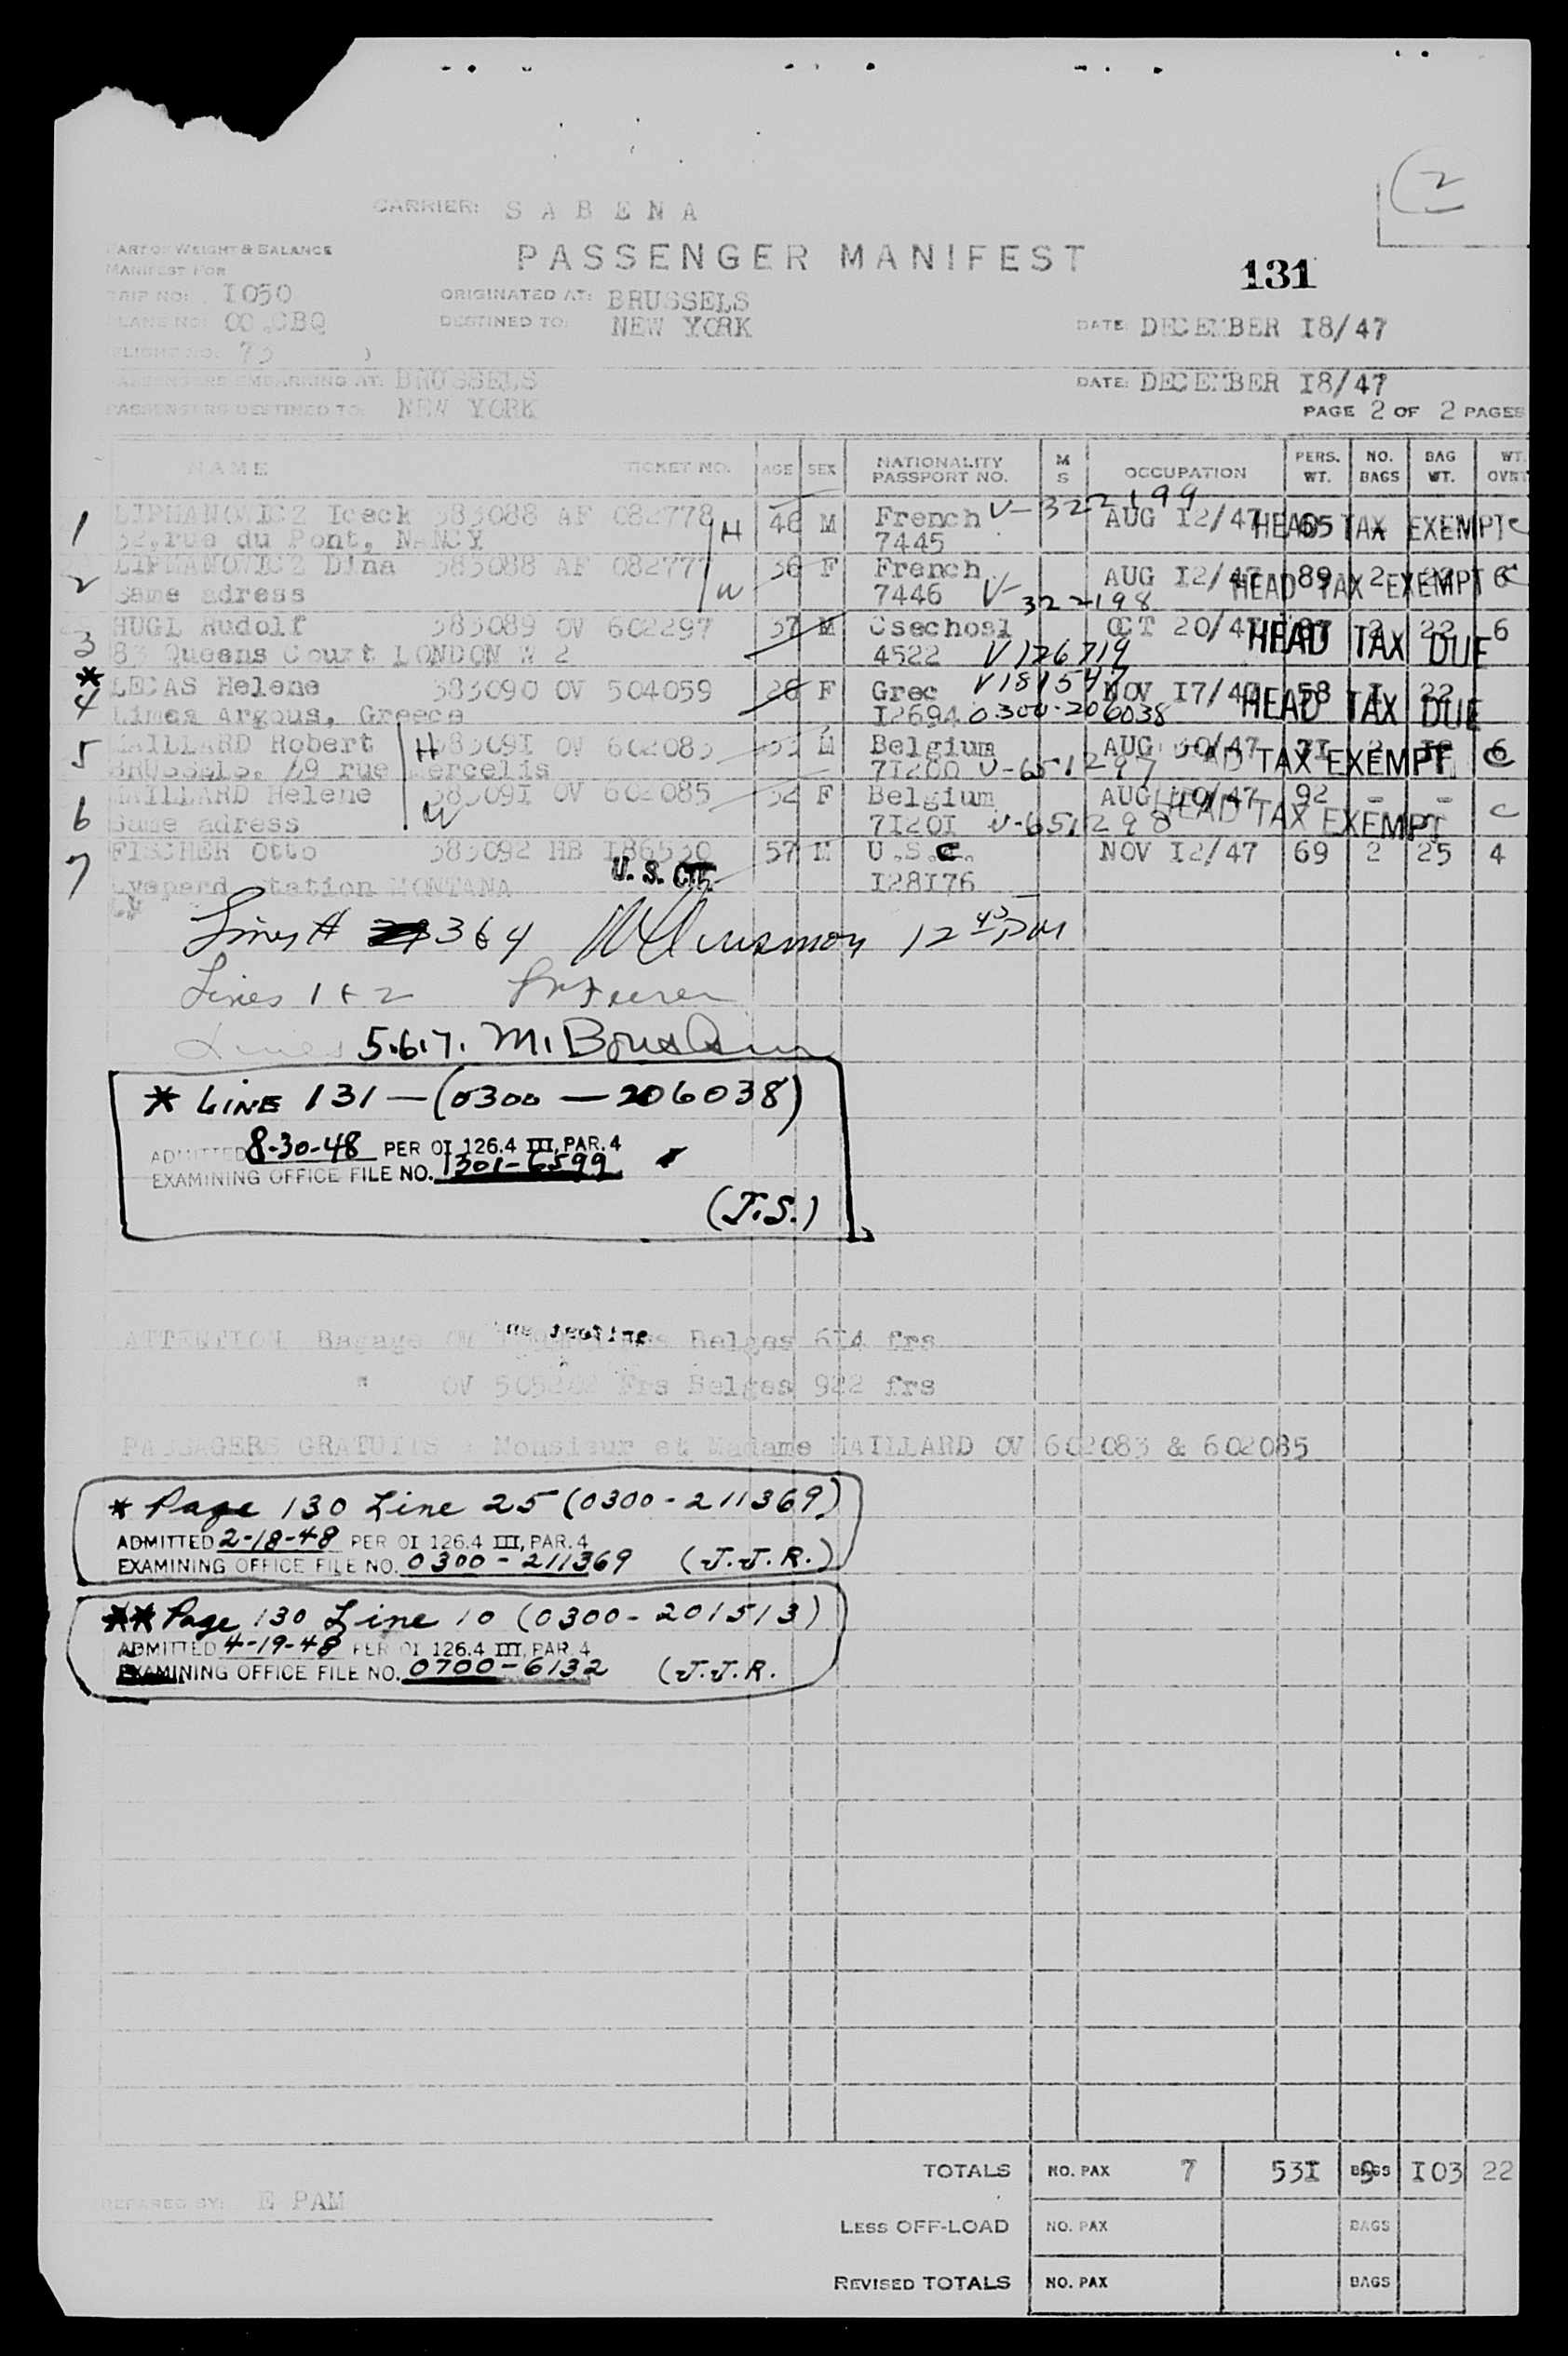 2
CARRIER: S A B E N A
PASSENGER MANIFEST
131
PART OF WEIGHT & BALANCE
MANIFEST FOR
TRIP NO: I050
ORIGINATED AT: BRUSSELS
PLANE NO: OO.CBQ
DESTINED TO: NEW YORK
DATE: DECEMBER I8/47
FLIGHT NO. 75 )
PASSENGERS EMBARKING AT: BRUSSELS
DATE: DECEMBER I8/47
PASSENGERS DESTINED TO: NEW YORK
PAGE 2 OF 2 PAGES
NAME TICKET NO. AGE SEX NATIONALITY PASSPORT NO. M S OCCUPATION PERS. WT. NO. BAGS BAG WT. WT. OVR
1 LIPMANOWICZ Iceck 383088 AF 082778 H 46 M French V-322199 AUG I2/47 65 HEAD TAX EXEMPT C
32,rue du Pont, NANCY 7445
2 LIPMANOWICZ Dina 383088 AF 082777 W 36 F French AUG I2/47 89 2 HEAD TAX EXEMPT 6 C
Same adress 7446 V-322198
3 HUGL Rudolf 383089 OV 602297 37 M Csechosl OCT 20/47 87 2 22 6 HEAD TAX DUE
83 Queens Court LONDON W 2 4522 V126719
* 4 LECAS Helene 383090 OV 504059 28 F Grec V181547 NOV I7/47 58 I 22 HEAD TAX DUE
Limea Argous, Greece I2694 0300-206038
5 MAILLARD Robert H 38309I OV 602083 33 M Belgium AUG 30/47 7I 2 6 HEAD TAX EXEMPT C
BRUSSELS. 49 rue Mercelis 7I200 V-651297
6 MAILLARD Helene W 38309I OV 602085 32 F Belgium AUG 30/47 92 - - HEAD TAX EXEMPT C
Same adress 7I20I V-651298
7 FISCHER Otto 383092 HB I86530 U. S. CIT. 57 M U.S.C. NOV I2/47 69 2 25 4
station MONTANA I28I76
Lines # 3 & 4 12 45 PM
Lines 1 & 2
Lines 5.6.7. M.
* LINE 131 — (0300 — 206038)
ADMITTED 8-30-48 PER OI 126.4 III, PAR. 4
EXAMINING OFFICE FILE NO. 1301-6599
(J.S.)
ATTENTION Bagage OV Frs Belges 6I4 frs
" OV 505202 Frs Belges 922 frs
PASSAGERS GRATUITS : Monsieur et Madame MAILLARD OV 602083 & 602085
* Page 130 Line 25 (0300-211369)
ADMITTED 2-18-48 PER OI 126.4 III, PAR. 4
EXAMINING OFFICE FILE NO. 0300-211369 (J.J.R.)
** Page 130 Line 10 (0300-201513)
ADMITTED 4-19-48 PER OI 126.4 III, PAR. 4
EXAMINING OFFICE FILE NO. 0700-6132 (J.J.R.
TOTALS NO. PAX 7 53I BAGS 9 I03 22
PREPARED BY: E PAM
LESS OFF-LOAD NO. PAX BAGS
REVISED TOTALS NO. PAX BAGS